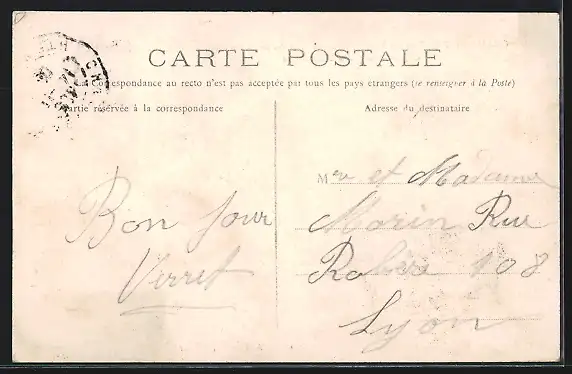 CARTE POSTALE
La Correspondance au recto n'est pas acceptée par tous les pays étrangers (se renseigner à la Poste)
Partie réservée à la correspondance
Adresse du destinataire
Bon jour
Verret
Mer et Madame
Morin Rue
108
Lyon